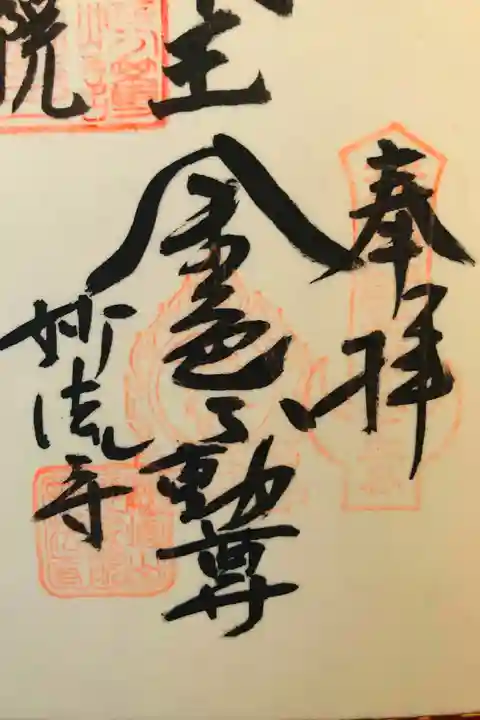 奉拝
金色不動尊
妙法寺
王
院